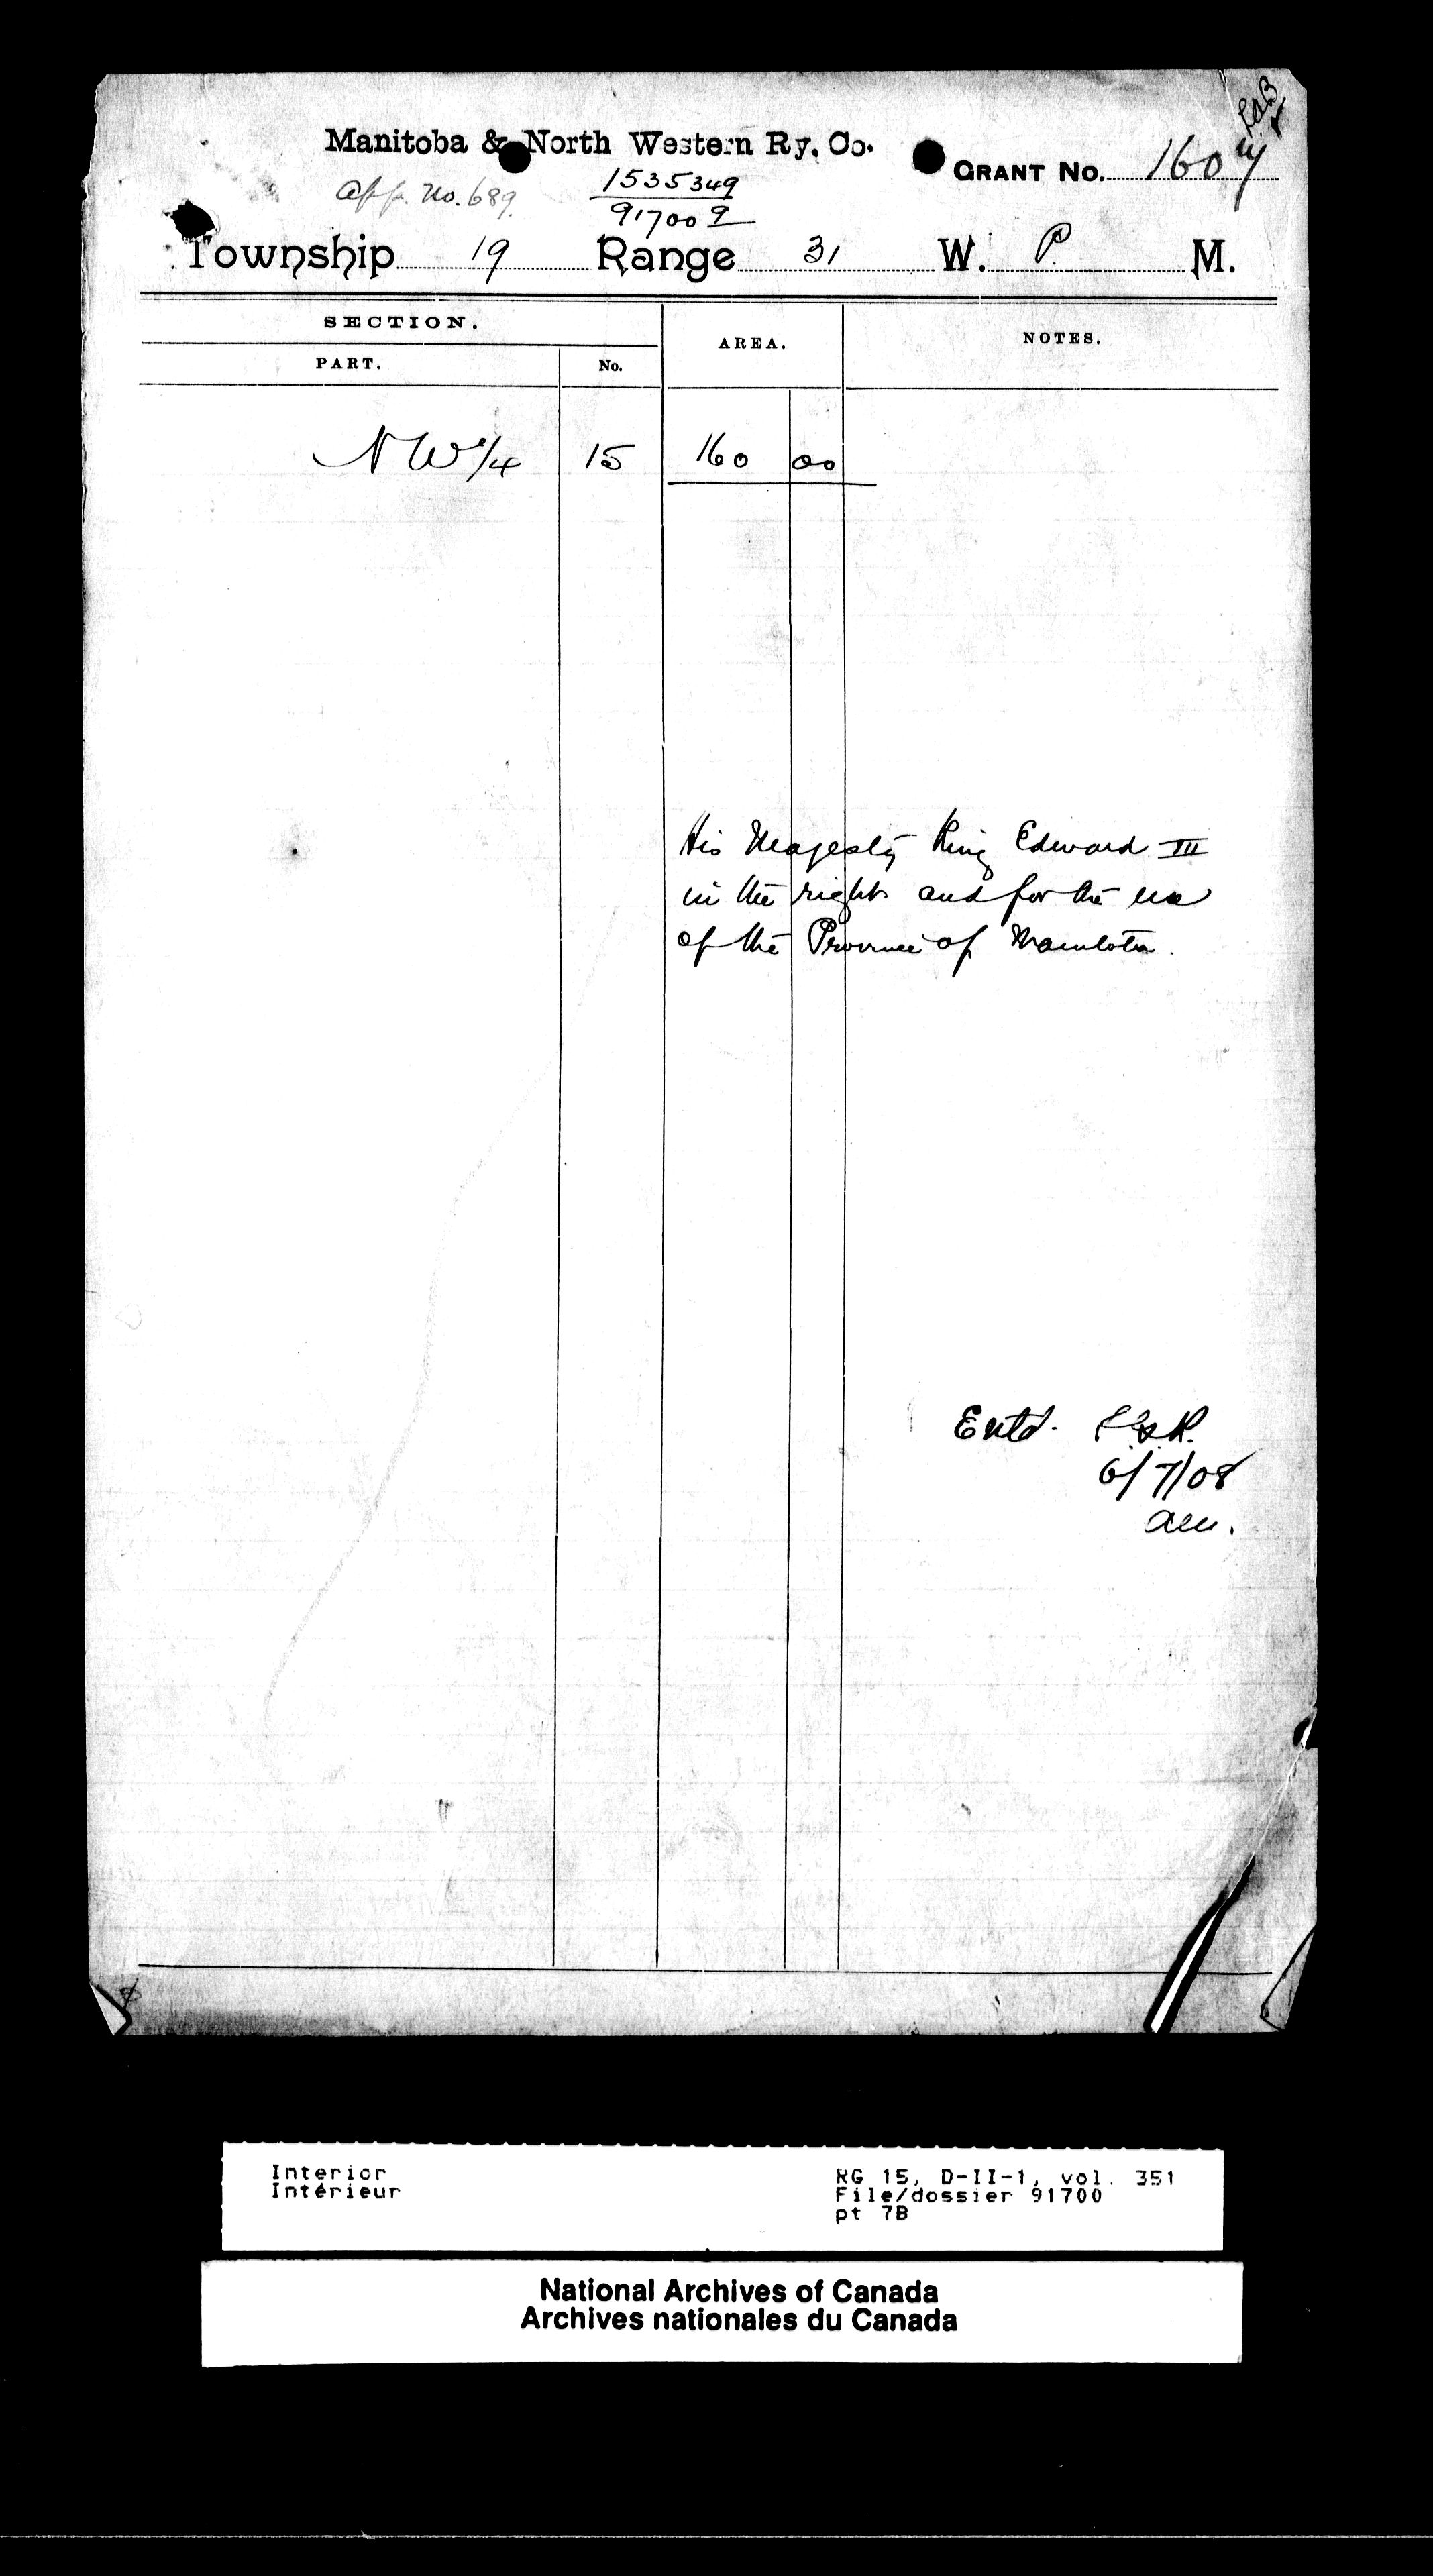 Manitoba & North Western Ry. Co.
GRANT No. 160
App. No. 689
1535349
91700 9
Township 19 Range 31 W. P. M.
SECTION.
AREA.
NOTES.
PART.
No.
NW 1/4 15 160 00
His Majesty King Edward III
in the right and for the use
of the Province of Manitoba.
Entd.
6/7/08
Interior
Intérieur
RG 15, D-II-1, vol. 351
File/dossier 91700
pt 7B
National Archives of Canada
Archives nationales du Canada